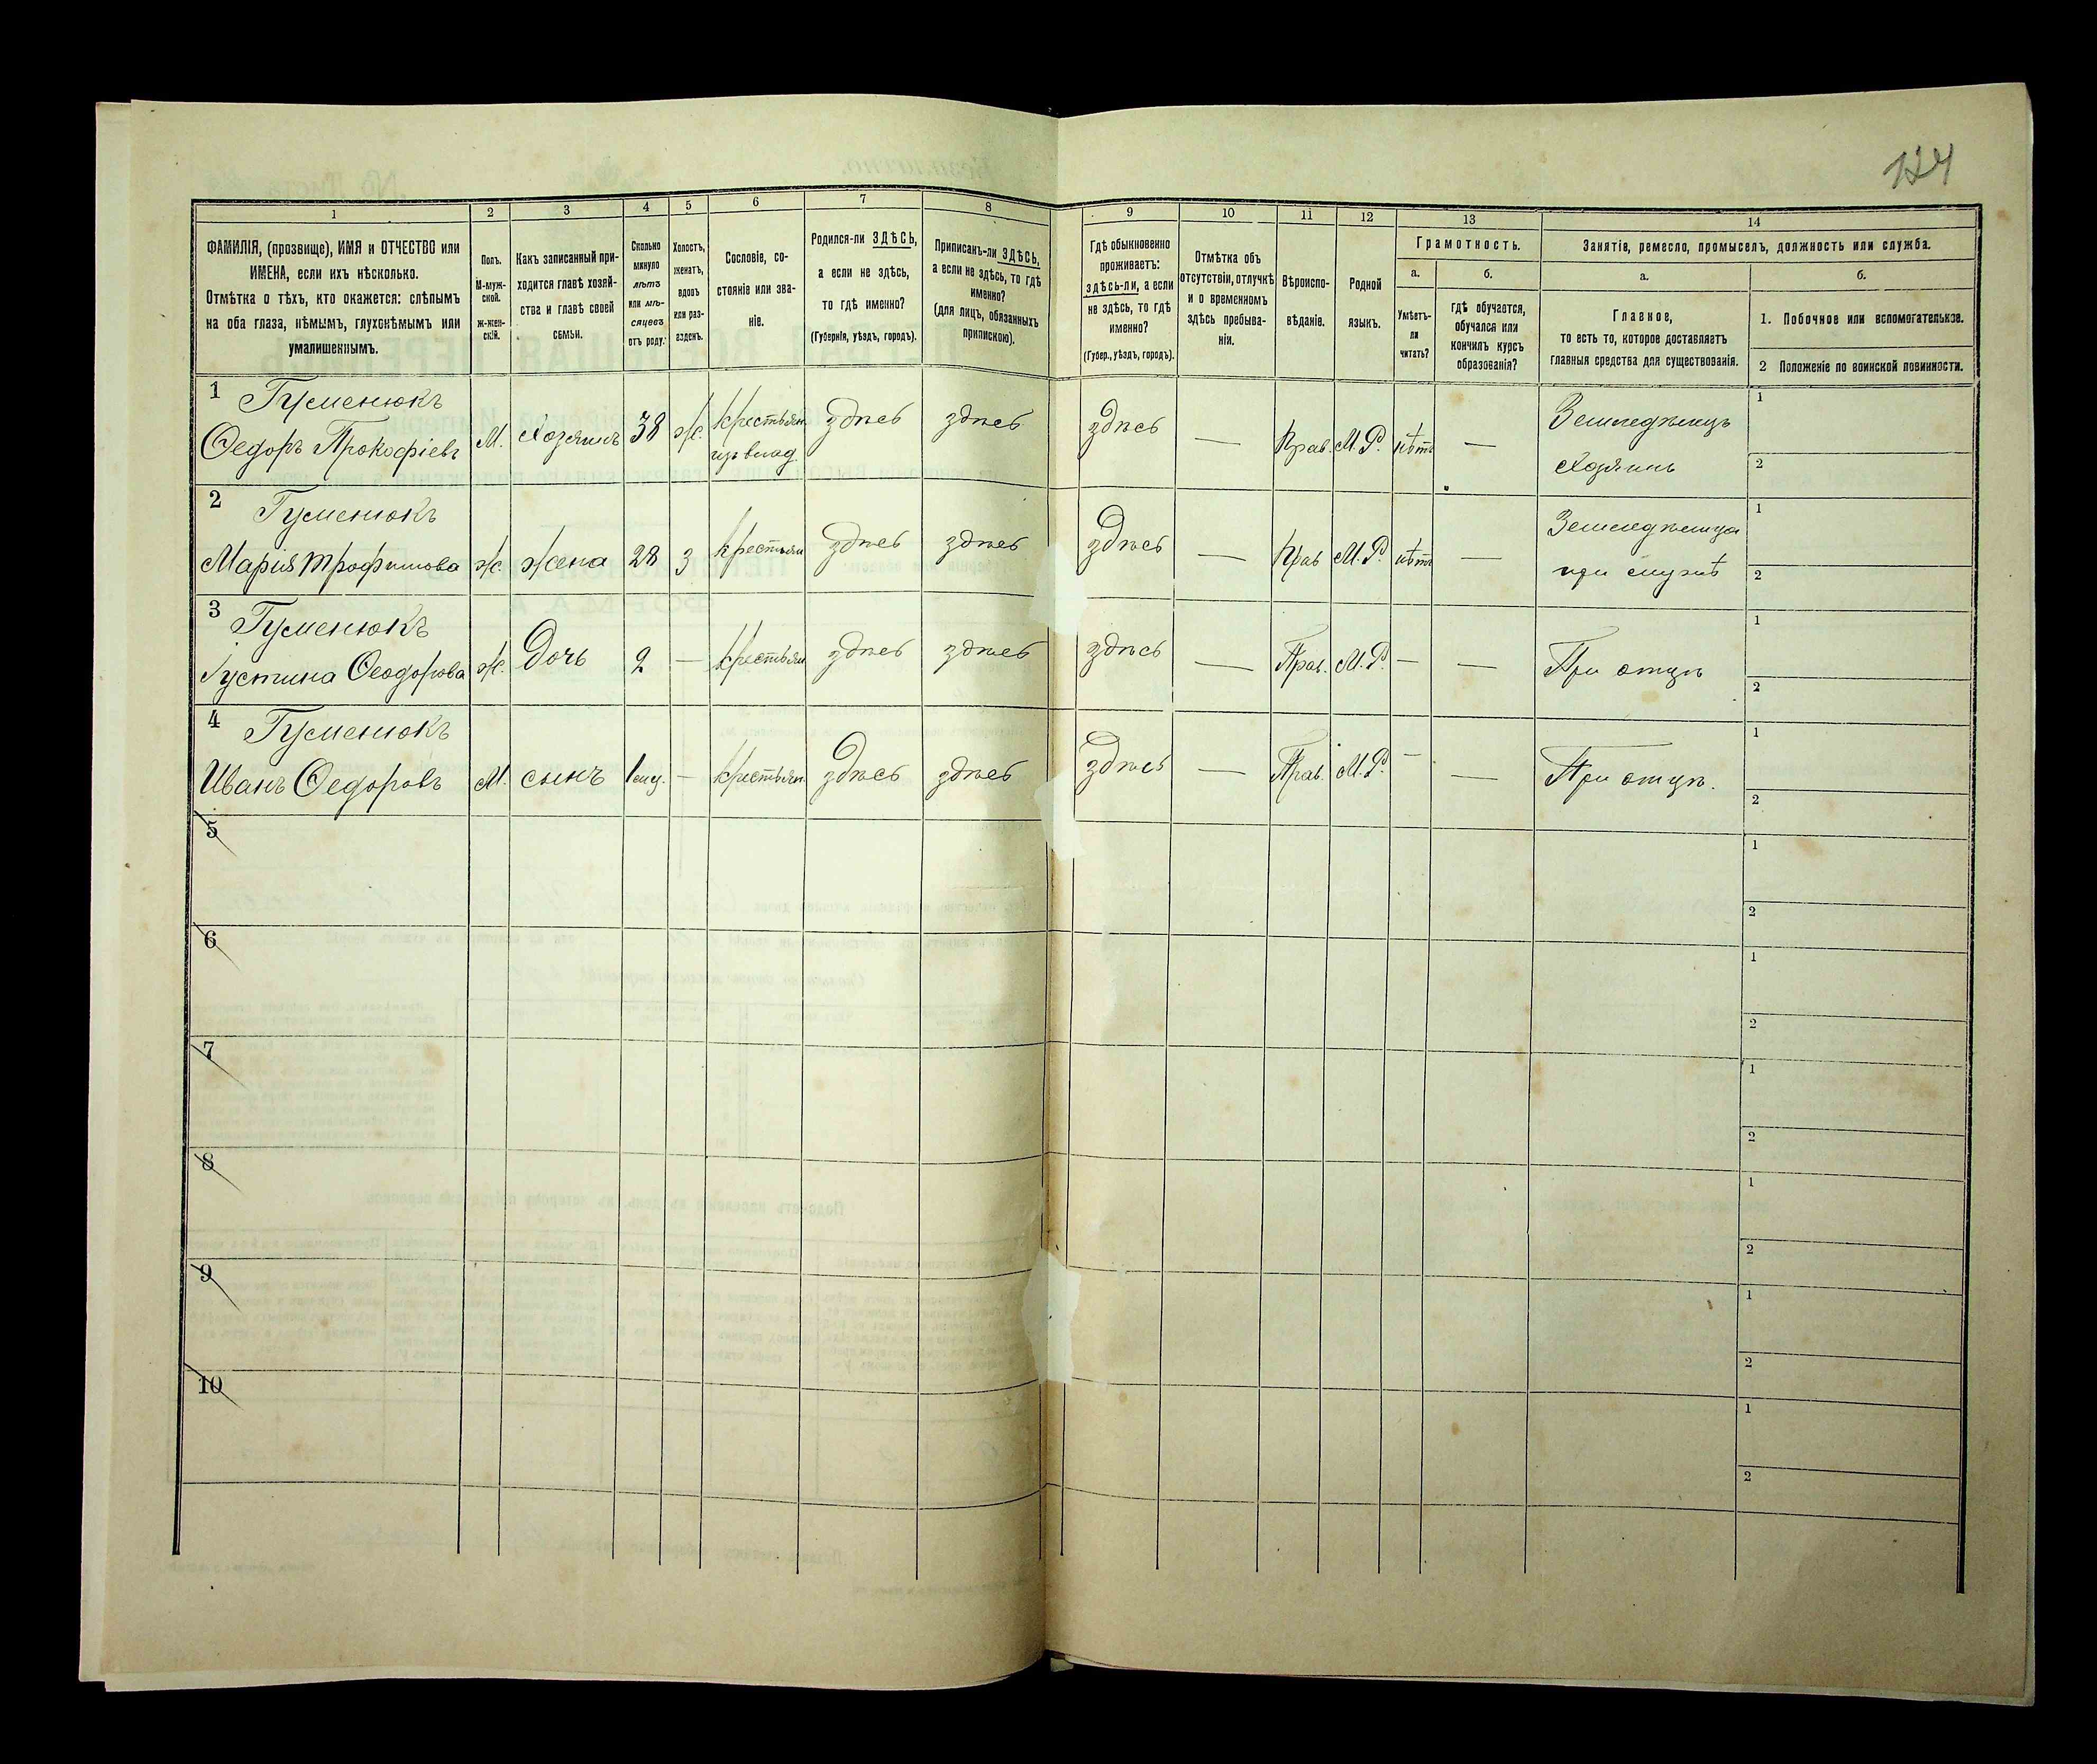 124
1 2 3 4 5 6 7 8 9 10 11 12 13 14
ФАМИЛІЯ, (прозвище), ИМЯ и ОТЧЕСТВО или
ИМЕНА, если ихъ нѣсколько.
Отмѣтка о тѣхъ, кто окажется: слѣпымъ
на оба глаза, нѣмымъ, глухонѣмымъ или
умалишеннымъ.
Полъ.
М-муж-
ской.
ж-жен-
скій.
Какъ записанный при-
ходится главѣ хозяй-
ства и главѣ своей
семьи.
Сколько
минуло
лѣтъ
или мѣ-
сяцевъ
отъ роду.
Холостъ,
женатъ,
вдовъ
или раз-
веденъ.
Сословіе, со-
стояніе или зва-
ніе.
Родился-ли ЗДѢСЬ,
а если не здѣсь,
то гдѣ именно?
(Губернія, уѣздъ, городъ).
Приписанъ-ли ЗДѢСЬ,
а если не здѣсь, то гдѣ
именно?
(для лицъ, обязанныхъ
припискою).
Гдѣ обыкновенно
проживаетъ:
здѣсь-ли, а если
не здѣсь, то гдѣ
именно?
(Губер., уѣздъ, городъ).
Отмѣтка объ
отсутствіи, отлучкѣ
и о временномъ
здѣсь пребыва-
ніи.
Вѣроиспо-
вѣданіе.
Родной
языкъ.
Грамотность.
а.
Умѣетъ-
ли
читать?
б.
гдѣ обучается,
обучался или
кончилъ курсъ
образованія?
Занятіе, ремесло, промыселъ, должность или служба.
а.
Главное,
то есть то, которое доставляетъ
главныя средства для существованія.
б.
1. Побочное или вспомогательное.
2 Положеніе по воинской повинности.
1 Гуменюкъ
Ѳедоръ Прокофіевъ М. Хозяинъ 38 ж. крестьян. здѣсь здѣсь здѣсь — Прав. М.Р. нѣтъ — Земледѣлецъ 1
изъ влад. хозяинъ 2
2 Гуменюкъ
Марія Трофимова ж. жена 28 з крестьян здѣсь здѣсь здѣсь — Прав М.Р. нѣтъ — Земледѣлица 1
при мужѣ 2
3 Гуменюкъ
Іустина Ѳеодорова ж. дочь 2 — крестьян здѣсь здѣсь здѣсь — Прав. М.Р. — — При отцѣ 1
2
4 Гуменюкъ
Иванъ Ѳедоровъ М. сынъ 1 мѣс. — крестьян. здѣсь здѣсь здѣсь — Прав. М.Р. — — При отцѣ. 1
2
5 1
2
6 1
2
7 1
2
8 1
2
9 1
2
10 1
2